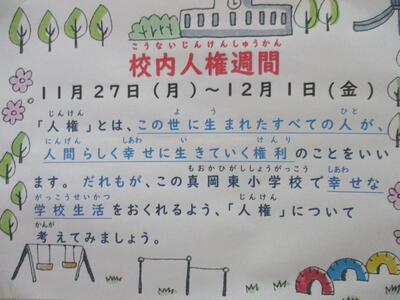 こうないじんけんしゅうかん
校内人権週間
11月27日(月)～12月1日(金)
じんけん よ う ひと
「人権」とは、この世に生まれたすべての人が、
にんげん しあわ い けんり
人間らしく幸せに生きていく権利のことをいい
もおかひがししょうがっこう しあわ
ます。だれもが、この真岡東小学校で幸せな
がっこうせいかつ じんけん
学校生活をおくれるよう、「人権」について
かんが
考えてみましょう。